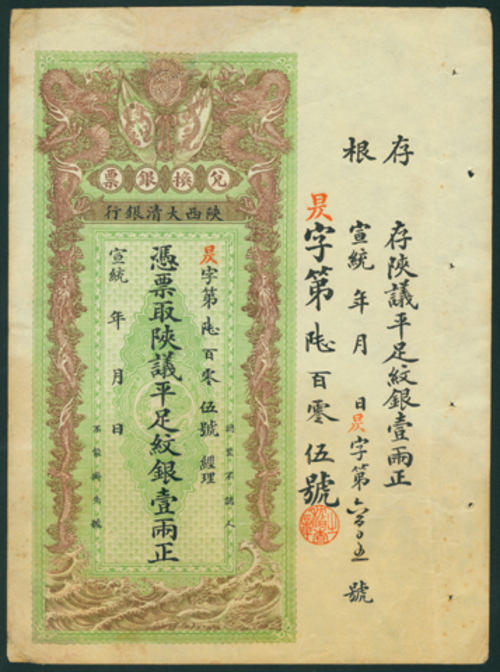 存根
存陝議平足紋銀壹兩正
宣統 年 月 日 昃字第六百〇五 號
昃字第陸百零伍號
兌換銀票
陝西大清銀行
認票不認人
昃字第陸百零伍號 經理
憑票取陝議平足紋銀壹兩正
宣統 年 月 日